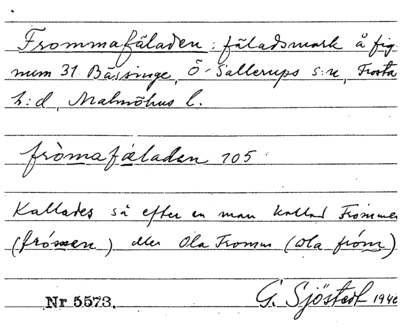 Frommafäladen: fäladsmark å fig.
num 31 Bässinge, Ö. Sallerups s:n, Frosta
h:d, Malmöhus l.
fròmafäladan 105
Kallades så efter en man kallad Frommen
(frómen) eller Ola Fromm (ola fróm)
G. Sjöstedt 1940
Nr 5573.